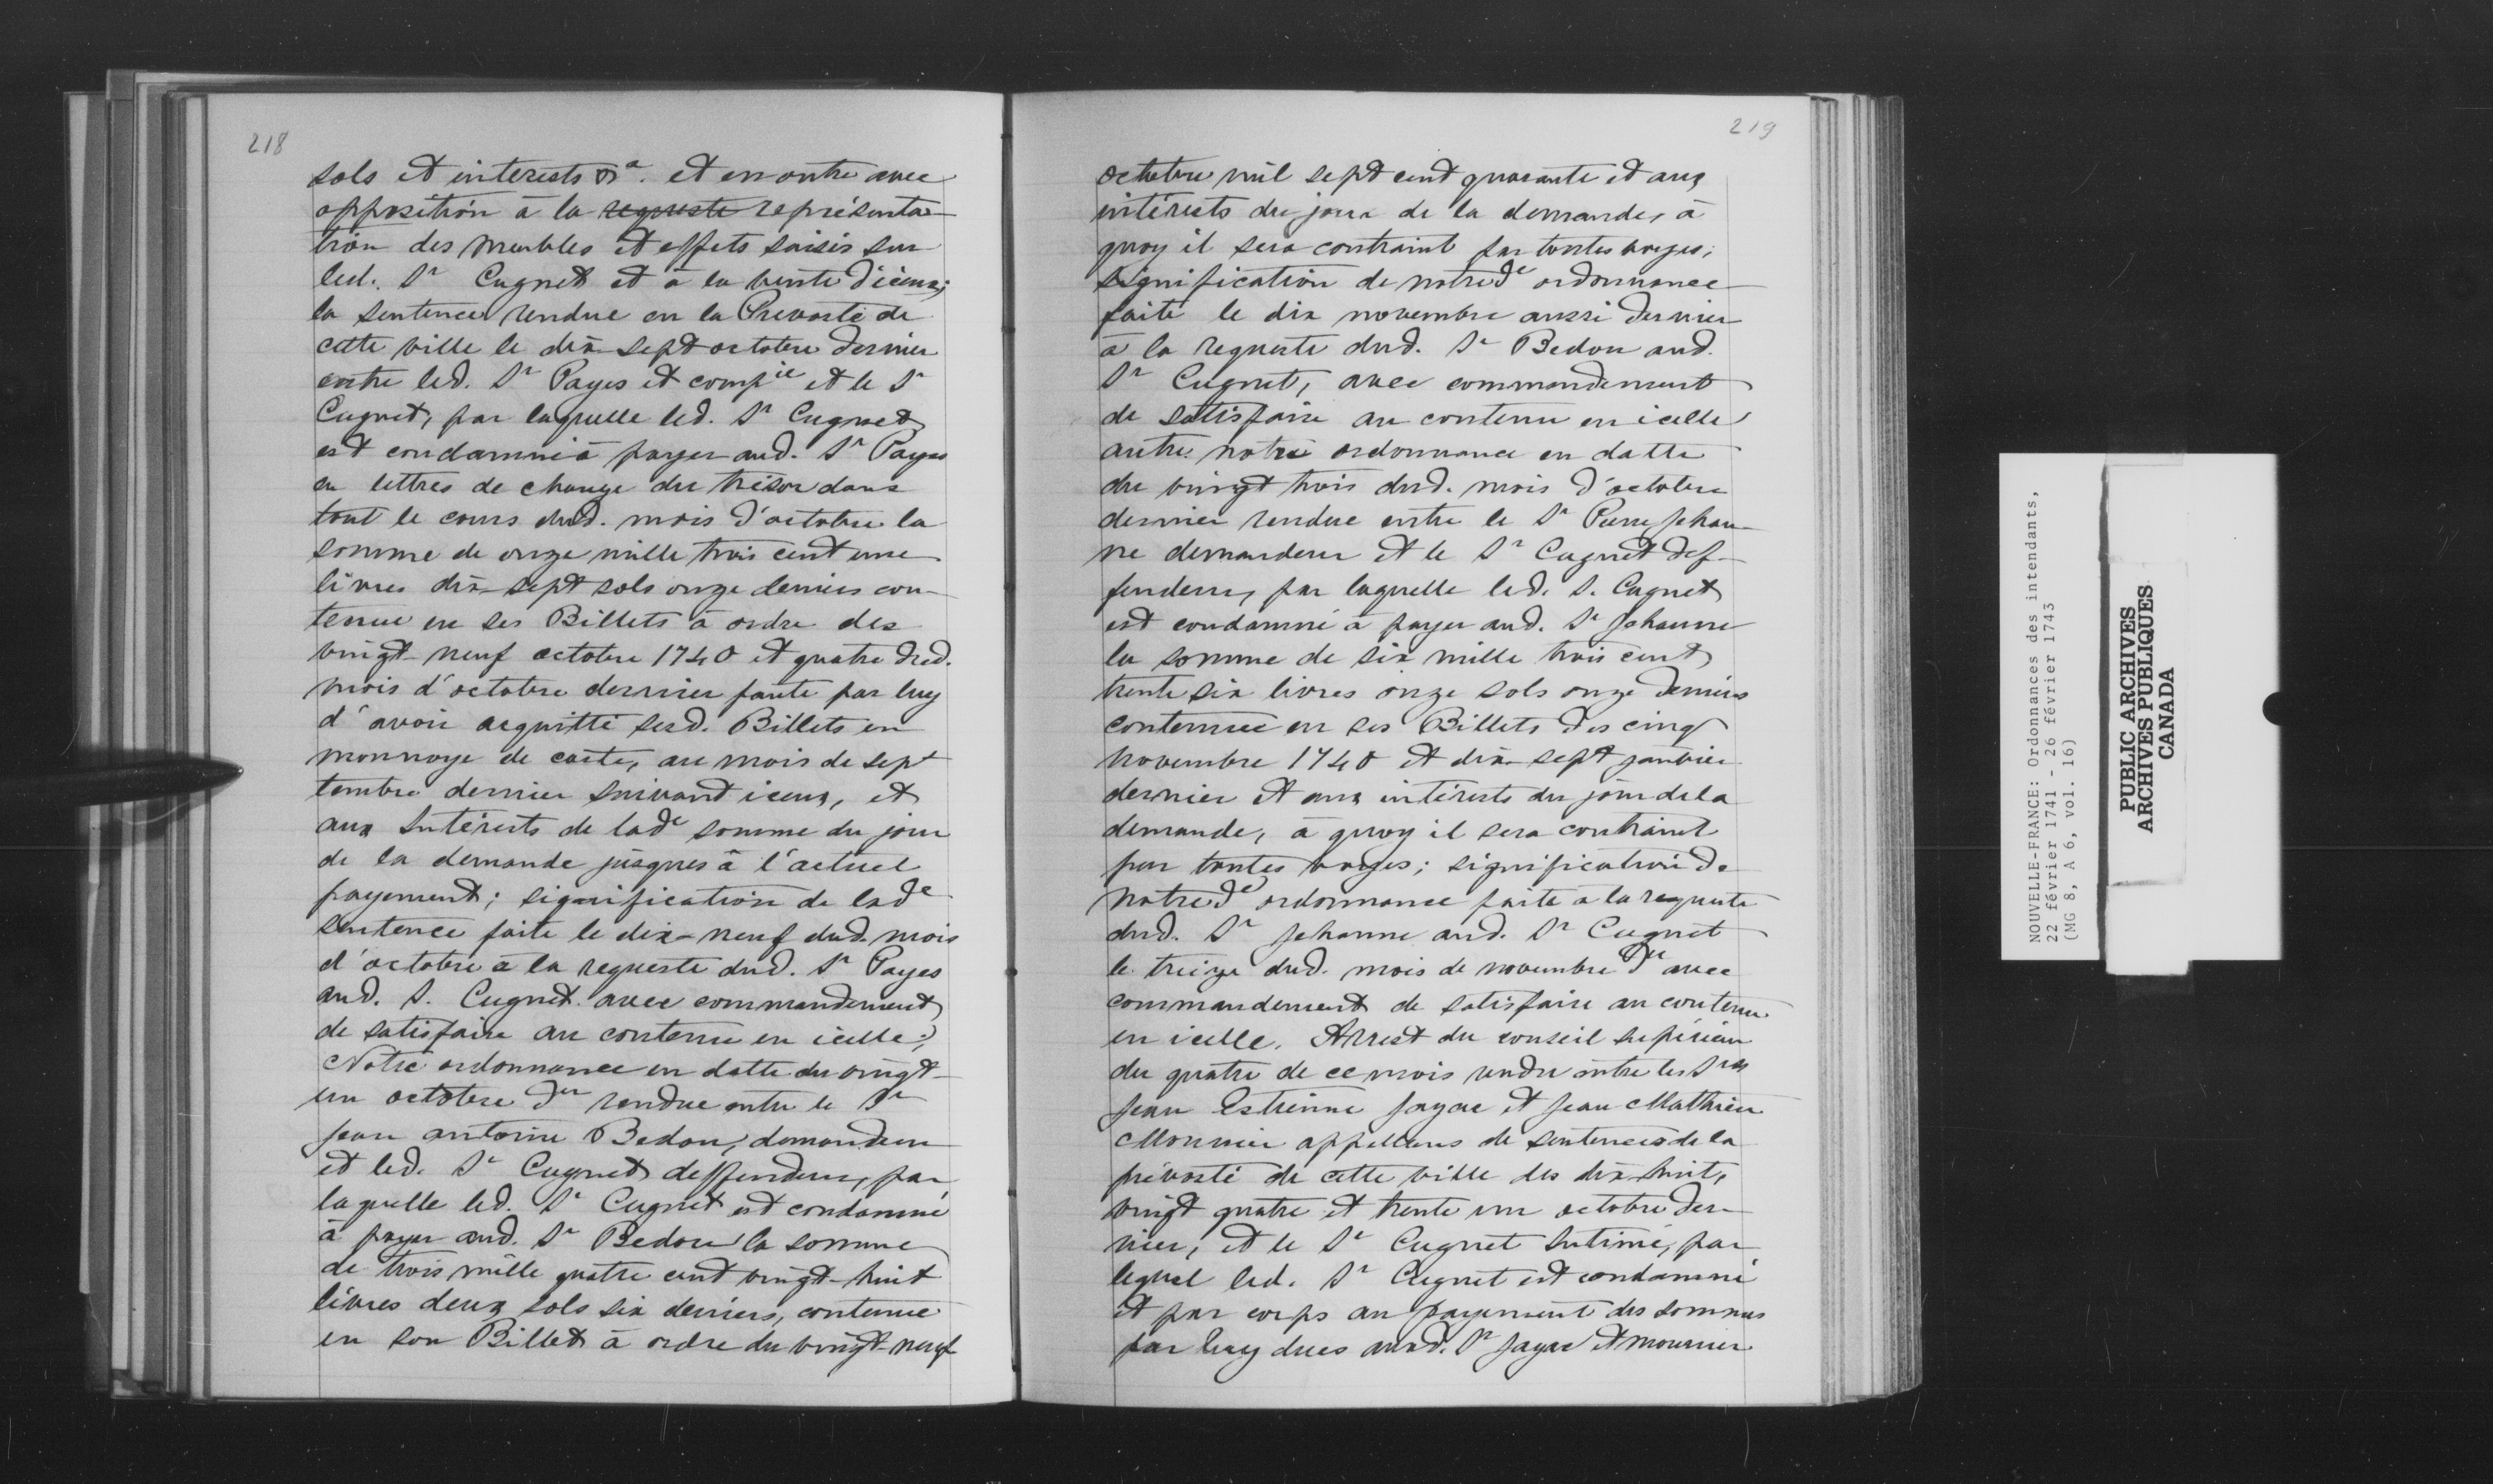 218
sols et interests &a. et en outre avec
opposition à la requeste représenta-
tion des meubles et effets saisis sur
led. Sr Cugnet et à la vente d'iceux;
la sentence rendue en la Prevosté de
cette ville le dix-sept octobre dernier
entre led. Sr Payes et compie et le Sr
Cugnet, par laquelle led. Sr Cugnet
est condamné à payer aud. Sr Payes
en lettres de change du trésor dans
tout le cours dud. mois d'octobre la
somme de onze mille trois cent une
livres dix-sept sols onze deniers con-
tenue en ses Billets à ordre des
vingt-neuf octobre 1740 et quatre dud.
mois d'octobre dernier faute par luy
d'avoir acquitté sesd. Billets en
monnoye de carte, au mois de sept
tembre dernier suivant iceux, et
aux Intérests de lade somme du jour
de la demande jusques à l'actuel
payement; signification de lade
sentence faite le dix-neuf dud. mois
d'octobre à la requeste dud. Sr Payes
aud. S. Cugnet avec commandement
de satisfaire au contenu en icelle;
Notre ordonnance en datte du vingt-
un octobre der rendue entre le Sr
Jean antoine Bedou, demandeur
et led. Sr Cugnet deffendeur, par
laquelle led. Sr Cugnet est condamné
à payer aud. Sr Bedou la somme
de trois mille quatre cent vingt-huit
livres deux sols six deniers, contenue
en son Billet à ordre du vingt-neuf
219
octobre mil sept cent quarante et aux
intérests du jour de la demande, à
quoy il sera contraint par toutes voyes;
signification de notred.e ordonnance
faite le dix novembre aussi dernier
à la requeste dud. Sr Bedou aud.
Sr Cugnet, avec commandement
de satisfaire au contenu en icelle
autre notre ordonnance en datte
du vingt trois dud. mois d'octobre
dernier rendue entre le Sr Pierre Jehan-
ne demandeur et le Sr Cugnet def-
fendeur, par laquelle led. S. Cugnet
est condamné à payer aud. Sr Jehanne
la somme de six mille trois cent
trente six livres onze sols onze deniers
contenuee en ses Billets des cinq
novembre 1740 et dix-sept janvier
dernier et aux intérests du jour de la
demande, à quoy il sera contraint
par toutes voyes; signification de
notred.e ordonnance faite à la requeste
dud. Sr Jehanne aud. Sr Cugnet
le treize dud. mois de novembre der avec
commandement de satisfaire au contenu
en icelle. Arrest du conseil supérieur
du quatre de ce mois rendu entre les Srs
Jean Estienne Jayac et Jean Mathieu
Mounier appellans de sentences de la
prévosté de cette ville des dix-huit,
vingt quatre et trente un octobre der-
nier, et le Sr Cugnet Intimé, par
lequel led. Sr Cugnet est condamné
et par corps au payement des sommes
par luy dues auxd. Sr Jayac et Mounier
NOUVELLE-FRANCE: Ordonnances des intendants,
22 février 1741 - 26 février 1743
(MG 8, A 6, vol. 16)
PUBLIC ARCHIVES
ARCHIVES PUBLIQUES
CANADA